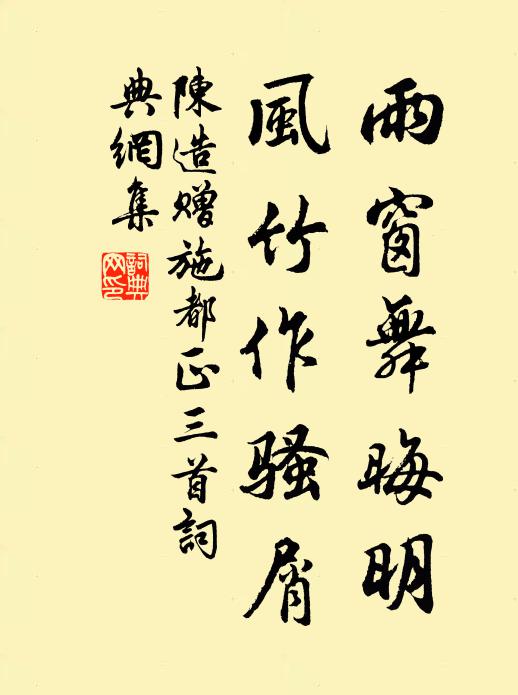 雨窗舞晦明
風竹作騷屑
陳造贈施都正三首詞
典網集
詞典
网印